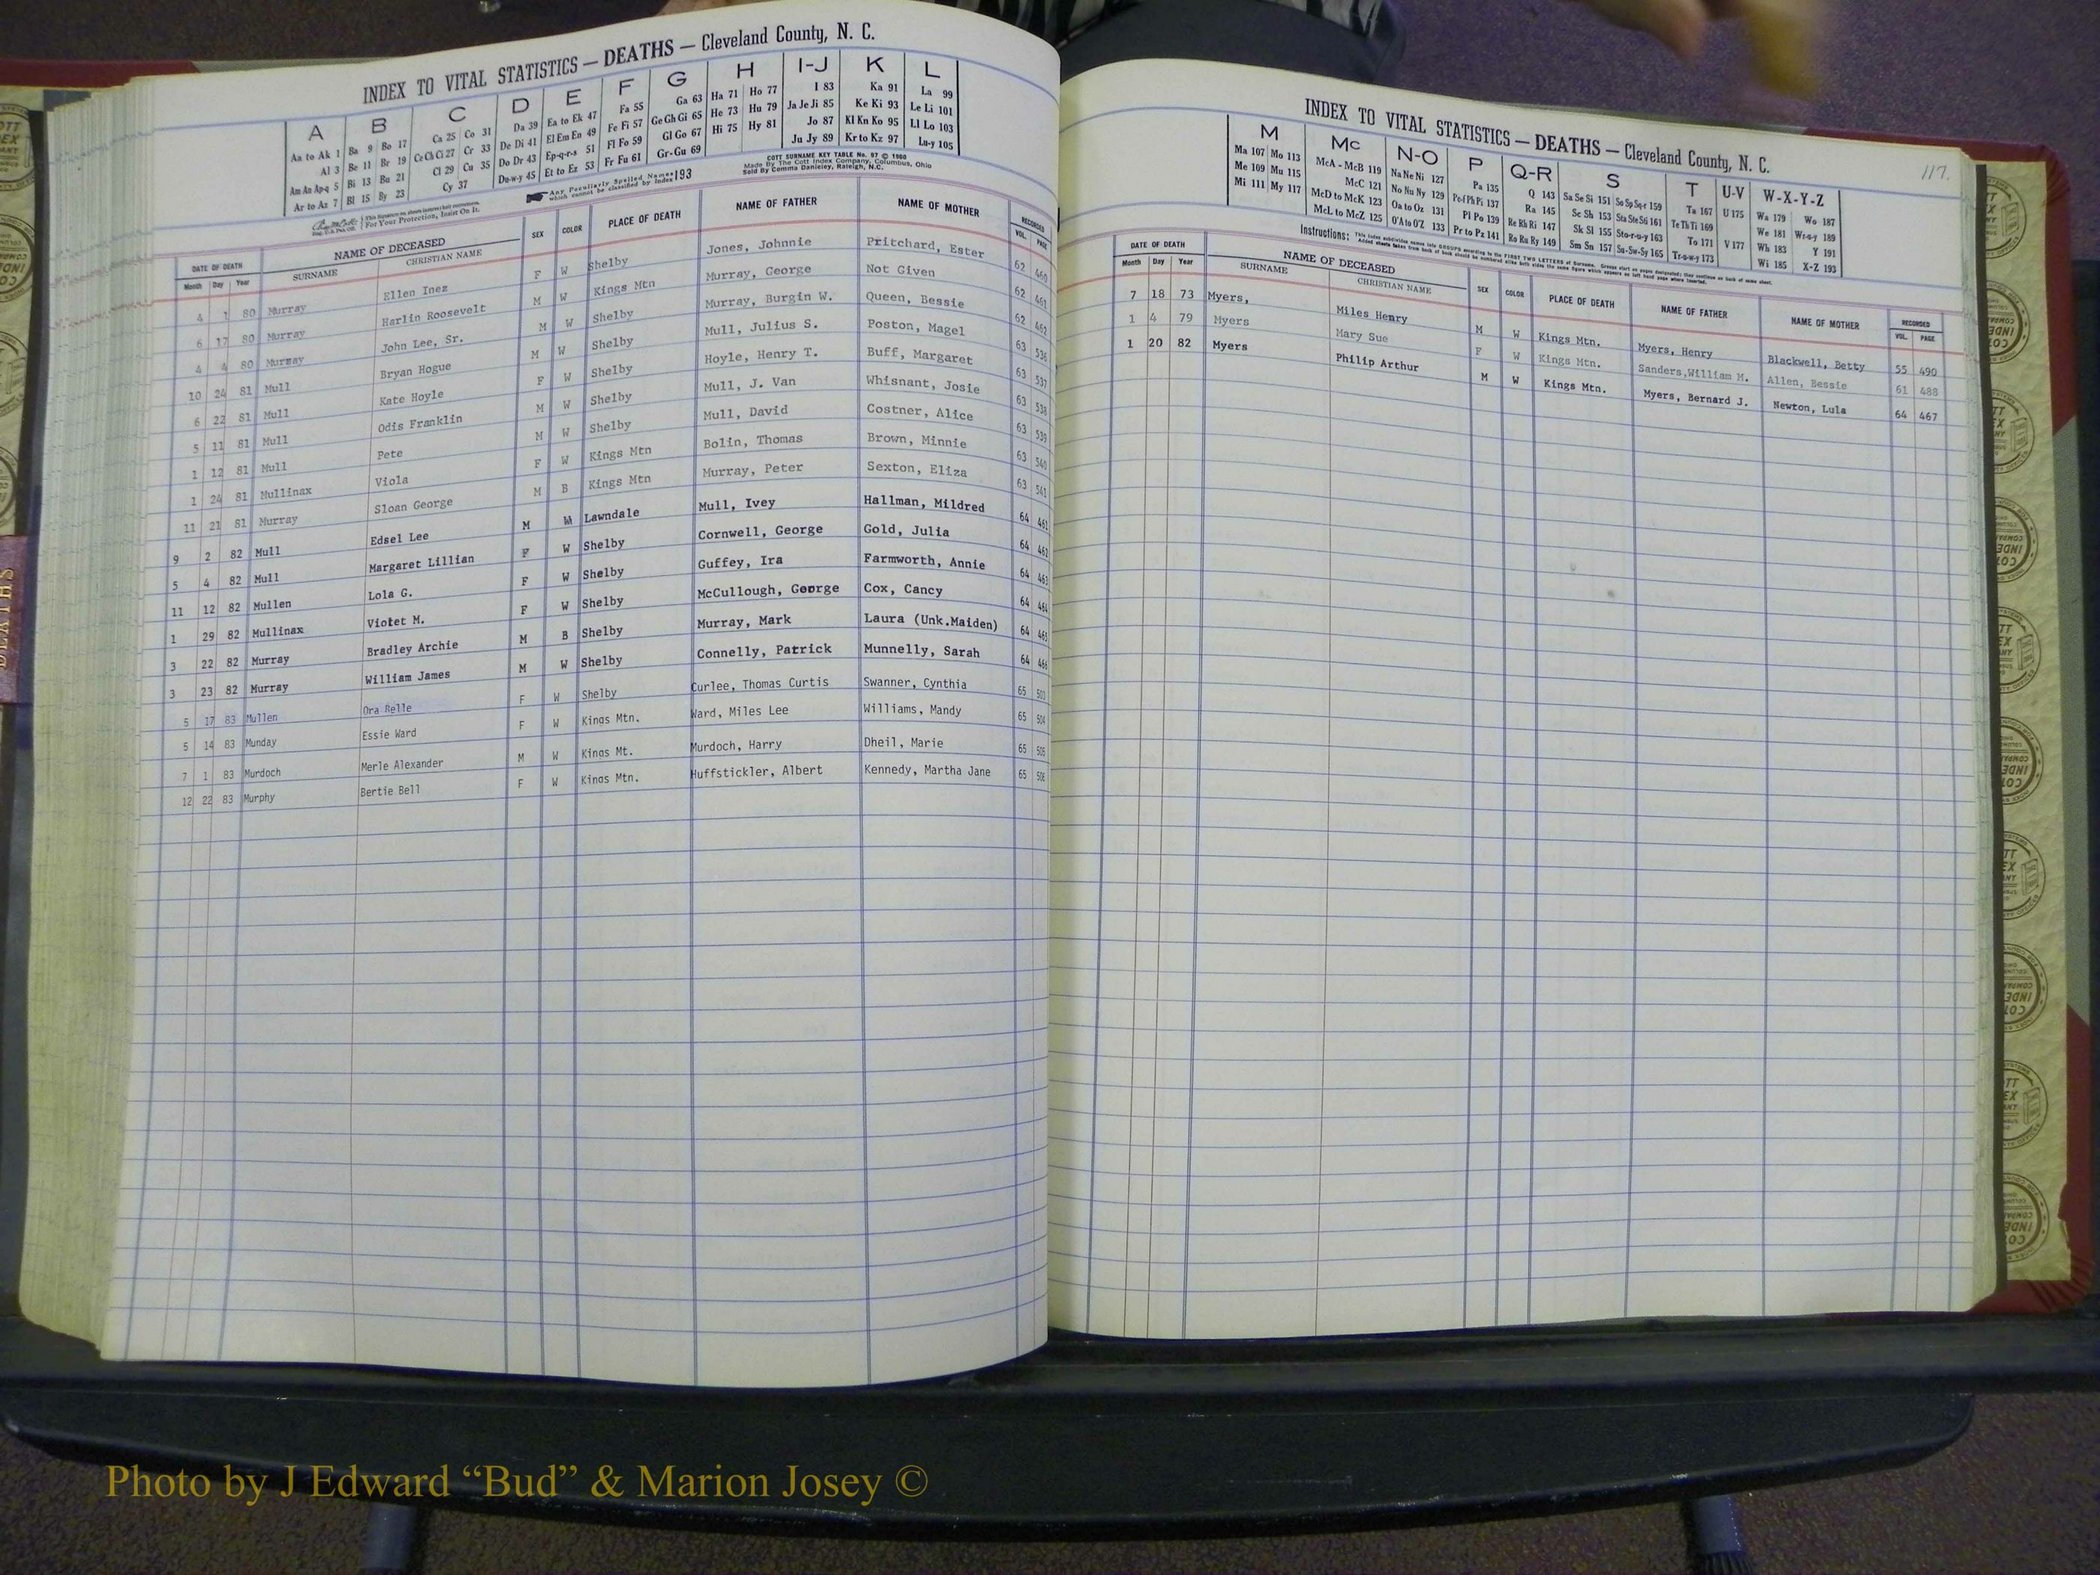 INDEX TO VITAL STATISTICS — DEATHS — Cleveland County, N. C.
A B C D E F G H I-J K L
Aa to Ak 1 Ba 9 Bo 17 Ca 25 Co 31 Da 39 Ea to Ek 47 Fa 55 Ga 63 Ha 71 Ho 77 I 83 Ka 91 La 99
Al 3 Be 11 Br 19 Ce Ch Ci 27 Cr 33 De Di 41 El Em En 49 Fe Fi 57 Ge Gh Gi 65 He 73 Hu 79 Ja Je Ji 85 Ke Ki 93 Le Li 101
Am An Ap-q 5 Bi 13 Bu 21 Cl 29 Cu 35 Do Dr 43 Ep-q-r-s 51 Fl Fo 59 Gl Go 67 Hi 75 Hy 81 Jo 87 Kl Kn Ko 95 Ll Lo 103
Ar to Az 7 Bl 15 By 23 Cy 37 Du-w-y 45 Et to Ez 53 Fr Fu 61 Gr-Gu 69 Ju Jy 89 Kr to Kz 97 Lu-y 105
For Your Protection, Insist On It.
Any Peculiarly Spelled Names which cannot be classified by Index 193
COTT SURNAME KEY TABLE No. 97 © 1960
Made By The Cott Index Company, Columbus, Ohio
Sold By Comma Danieley, Raleigh, N.C.
DATE OF DEATH NAME OF DECEASED SEX COLOR PLACE OF DEATH NAME OF FATHER NAME OF MOTHER RECORDED
Month Day Year SURNAME CHRISTIAN NAME VOL. PAGE
4 1 80 Murray Ellen Inez F W Shelby Jones, Johnnie Pritchard, Ester 62 460
6 17 80 Murray Harlin Roosevelt M W Kings Mtn Murray, George Not Given 62 461
4 4 80 Murray John Lee, Sr. M W Shelby Murray, Burgin W. Queen, Bessie 62 462
10 24 81 Mull Bryan Hogue M W Shelby Mull, Julius S. Poston, Magel 63 536
6 22 81 Mull Kate Hoyle F W Shelby Hoyle, Henry T. Buff, Margaret 63 537
5 11 81 Mull Odis Franklin M W Shelby Mull, J. Van Whisnant, Josie 63 538
1 12 81 Mull Pete M W Shelby Mull, David Costner, Alice 63 539
1 24 81 Mullinax Viola F W Kings Mtn Bolin, Thomas Brown, Minnie 63 540
11 21 81 Murray Sloan George M B Kings Mtn Murray, Peter Sexton, Eliza 63 541
9 2 82 Mull Edsel Lee M W Lawndale Mull, Ivey Hallman, Mildred 64 461
5 4 82 Mull Margaret Lillian F W Shelby Cornwell, George Gold, Julia 64 462
11 12 82 Mullen Lola G. F W Shelby Guffey, Ira Farmworth, Annie 64 463
1 29 82 Mullinax Violet M. F W Shelby McCullough, George Cox, Cancy 64 464
3 22 82 Murray Bradley Archie M B Shelby Murray, Mark Laura (Unk.Maiden) 64 465
3 23 82 Murray William James M W Shelby Connelly, Patrick Munnelly, Sarah 64 466
5 17 83 Mullen Ora Belle F W Shelby Curlee, Thomas Curtis Swanner, Cynthia 65 503
5 14 83 Munday Essie Ward F W Kings Mtn. Ward, Miles Lee Williams, Mandy 65 504
7 1 83 Murdoch Merle Alexander M W Kings Mt. Murdoch, Harry Dheil, Marie 65 505
12 22 83 Murphy Bertie Bell F W Kings Mtn. Huffstickler, Albert Kennedy, Martha Jane 65 506
INDEX TO VITAL STATISTICS — DEATHS — Cleveland County, N. C.
117.
M Mc N-O P Q-R S T U-V W-X-Y-Z
Ma 107 Mo 113 McA - McB 119 Na Ne Ni 127 Pa 135 Q 143 Sa Se Si 151 So Sp Sq-r 159 Ta 167 U 175 Wa 179 Wo 187
Me 109 Mu 115 McC 121 No Nu Ny 129 Pe-f Ph Pi 137 Ra 145 Sc Sh 153 Sta Ste Sti 161 Te Th Ti 169 We 181 Wr-u-y 189
Mi 111 My 117 McD to McK 123 Oa to Oz 131 Pl Po 139 Re Rh Ri 147 Sk Sl 155 Sto-r-u-y 163 To 171 V 177 Wh 183 Y 191
McL to McZ 125 O'A to O'Z 133 Pr to Pz 141 Ro Ru Ry 149 Sm Sn 157 Su-Sw-Sy 165 Tr-u-w-y 173 Wi 185 X-Z 193
Instructions: This index subdivides names into GROUPS according to the FIRST TWO LETTERS of Surname.
DATE OF DEATH NAME OF DECEASED SEX COLOR PLACE OF DEATH NAME OF FATHER NAME OF MOTHER RECORDED
Month Day Year SURNAME CHRISTIAN NAME VOL. PAGE
7 18 73 Myers, Miles Henry M W Kings Mtn. Myers, Henry Blackwell, Betty 55 490
1 4 79 Myers Mary Sue F W Kings Mtn. Sanders,William M. Allen, Bessie 61 488
1 20 82 Myers Philip Arthur M W Kings Mtn. Myers, Bernard J. Newton, Lula 64 467
DEATHS
Photo by J Edward “Bud” & Marion Josey ©